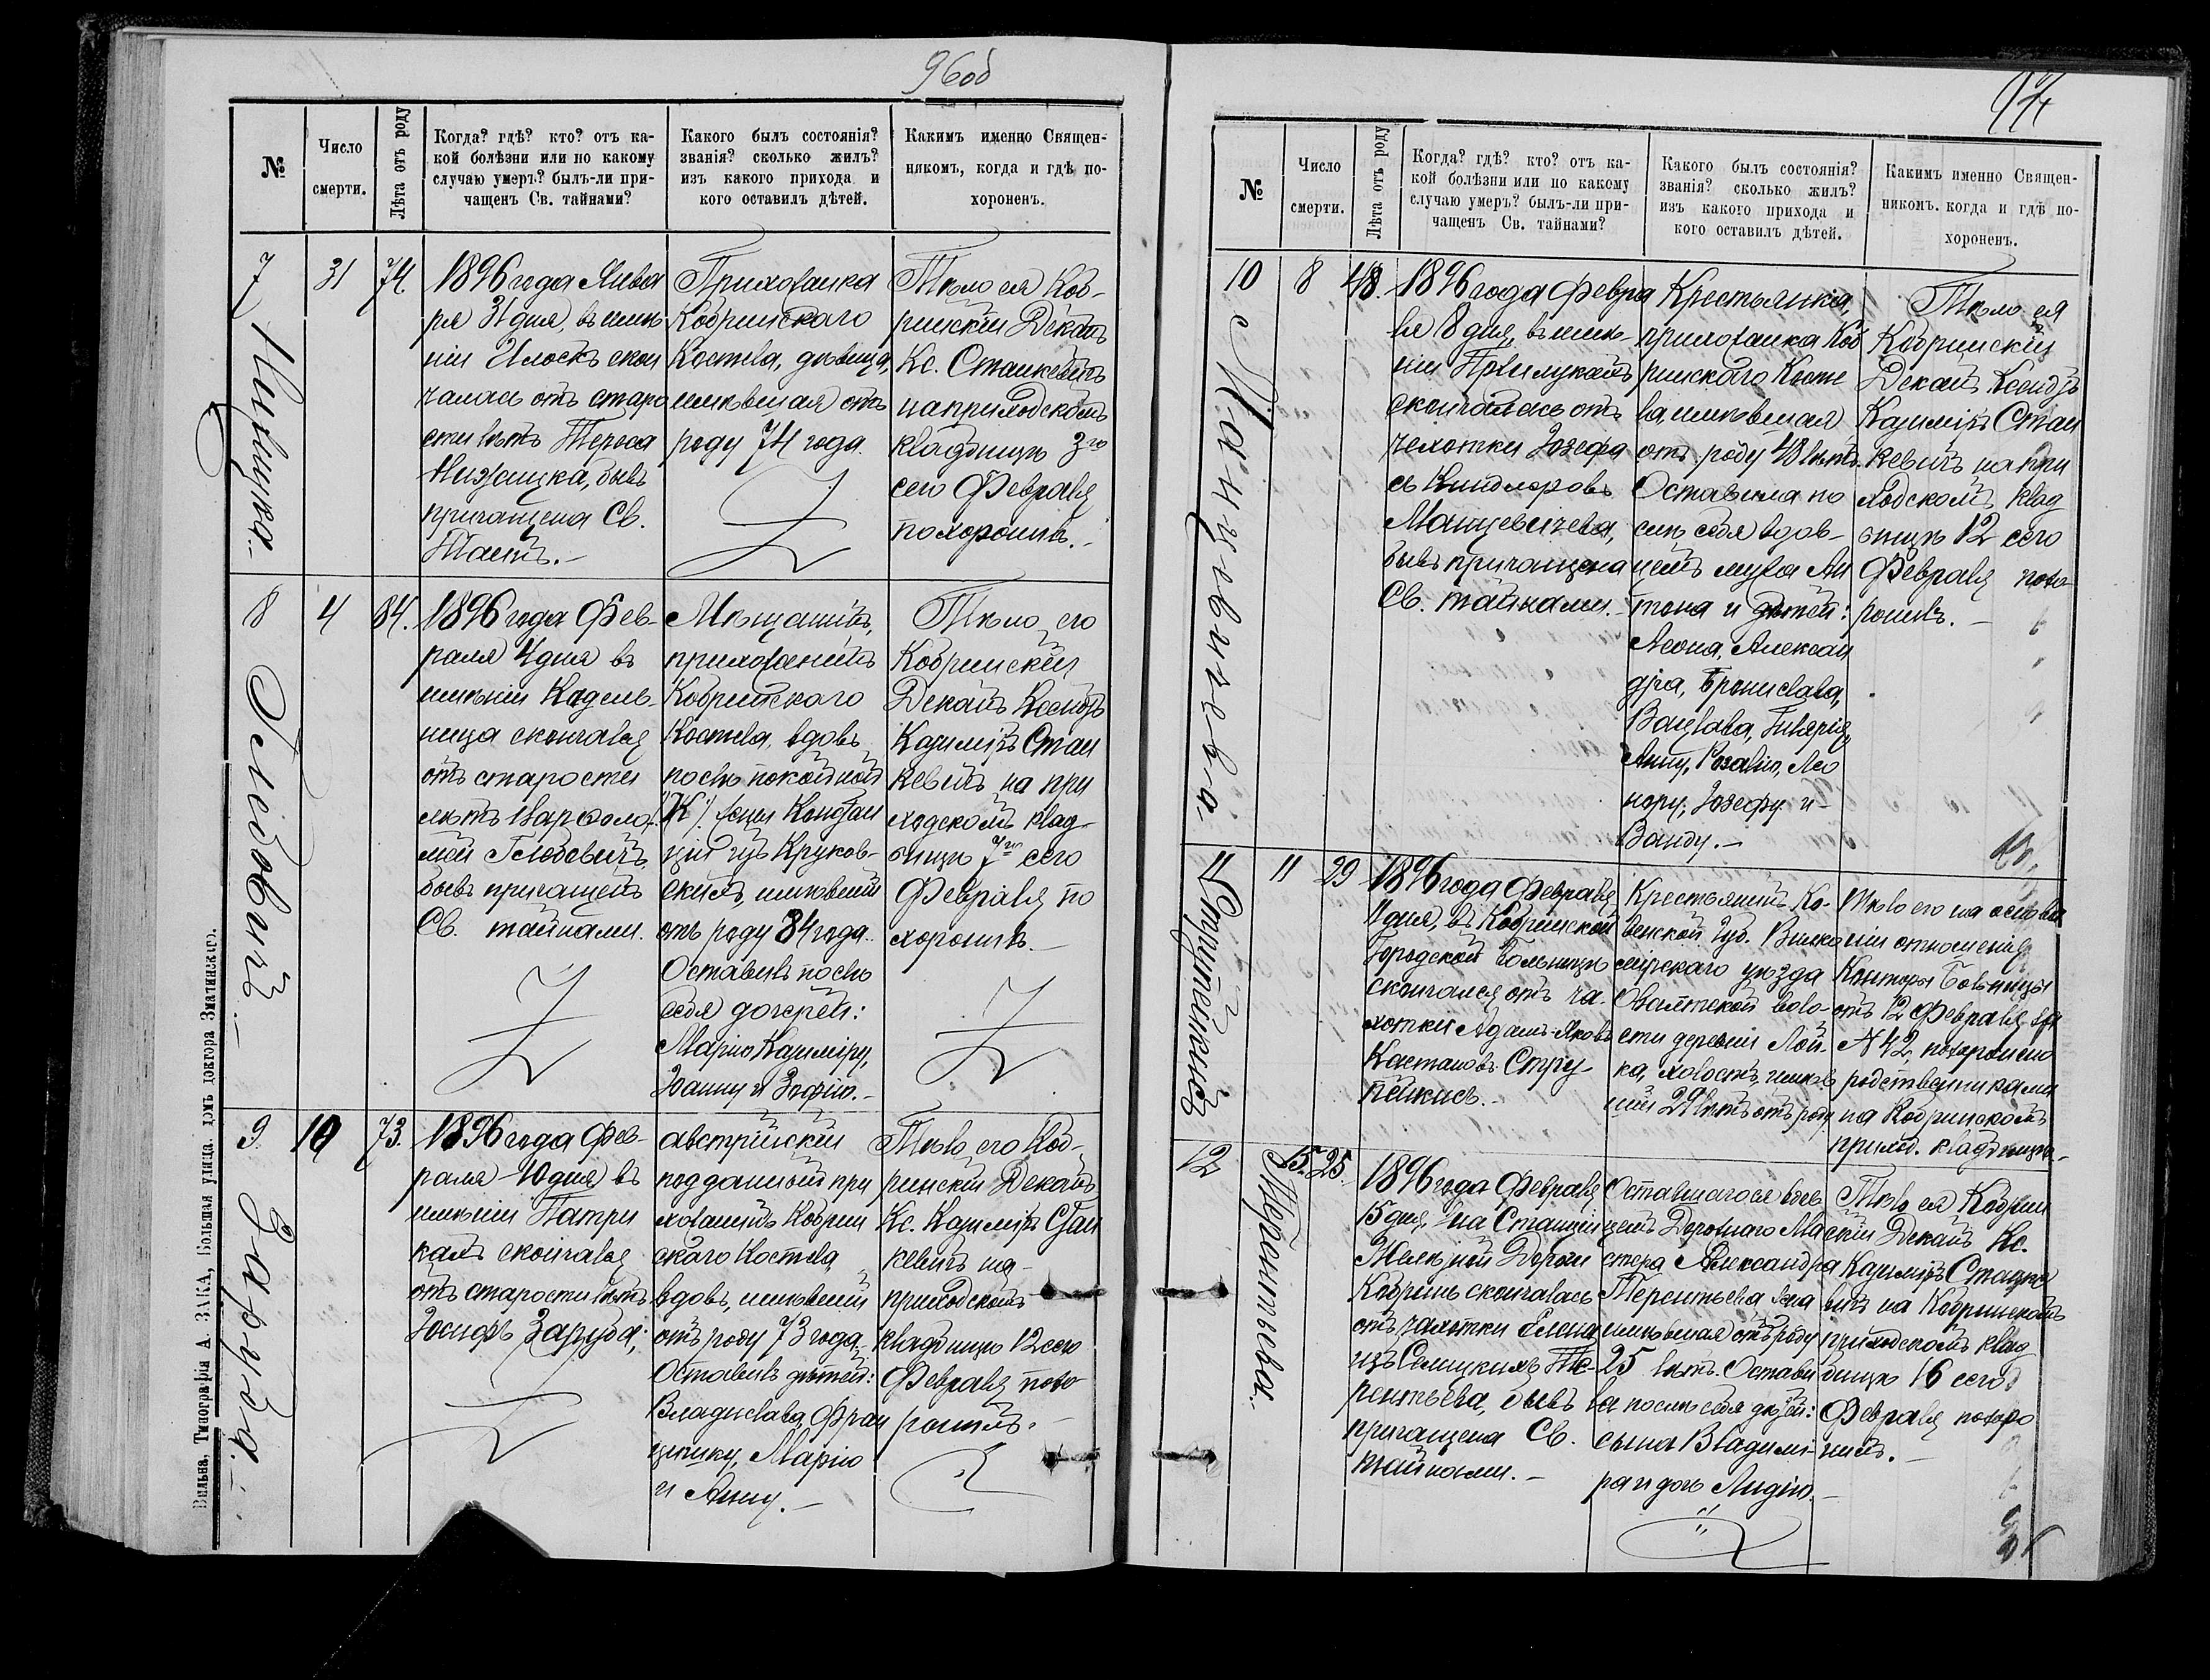 96об
№
Число
смерти.
Лѣта отъ роду
Когда? гдѣ? кто? отъ ка-
кой болѣзни или по какому
случаю умеръ? былъ-ли при-
чащенъ Св. тайнами?
Какого былъ состоянія?
званія? сколько жилъ?
изъ какого прихода и
кого оставилъ дѣтей.
Какимъ именно Священ-
никомъ, когда и гдѣ по-
хороненъ.
7
31
74.
1896 года Янва
ря 31 дня, въ имѣ
ніи Илоскъ скон
чалась отъ старо
сти лѣтъ Тереса
бывъ
причащена Св.
Таинъ.-
Прихожанка
Кобринскаго
Костела, дѣвица,
имѣвшая отъ
роду 74 года.
Тѣло ея Коб-
ринскій Деканъ
Кс. Станкевичъ
на приходскомъ
кладбищѣ 3го
сего Февраля
похоронилъ.-
8
Глѣбовичъ.-
4
84.
1896 года Фев-
раля 4 дня въ
имѣніи Кадель-
ница скончался
отъ старости
лѣтъ Варѳоло-
мей Глѣбовичъ,
бывъ причащенъ
Св. тайнами.
Мѣщанинъ,
прихожанинъ
Кобринскаго
Костела, вдовъ
послѣ покойной
жены Констан
ціи изъ Круков-
скихъ, имѣвшій
отъ роду 84 года.
Оставилъ послѣ
себя дочерей:
Марію Казиміру,
Іоанну и Зофію.-
Тѣло его
Кобринскій
Деканъ Ксендзъ
Казиміръ Стан
кевичъ на при
ходскомъ клад-
бищѣ 7го сего
Февраля по
хоронилъ.-
9
Заруба.-
10
73.
1896 года Фев-
раля 10 дня въ
имѣніи Патри
кахъ скончался
отъ старости лѣтъ
Іосифъ Заруба,
австрійскій
подданный при
хожанинъ Кобрин
скаго Костела
вдовъ, имѣвшій
отъ роду 73 года.
Оставилъ дѣтей:
Владислава, Фран
цишку, Марію
и Анну.-
Тѣло его Коб-
ринскій Деканъ
Кс. Казиміръ Стан
кевичъ на-
приходскомъ
кладбищѣ 12 сего
Февраля похо
ронилъ.
Вильна, Типографія А. ЗАКА, Большая улица, домъ доктора Зматинскаго.
97
№
Число
смерти.
Лѣта отъ роду
Когда? гдѣ? кто? отъ ка-
кой болѣзни или по какому
случаю умеръ? былъ-ли при-
чащенъ Св. тайнами?
Какого былъ состоянія?
званія? сколько жилъ?
изъ какого прихода и
кого оставилъ дѣтей.
Какимъ именно Священ-
никомъ, когда и гдѣ по-
хороненъ.
10
Манцевичева.
8
48.
1896 года Февра
ля 8 дня, въ имѣ-
ніи Прилукахъ
скончалась отъ
чахотки Іозефа
съ
Манцевичева,
бывъ причащена
Св. тайнами.-
Крестьянка,
прихожанка Коб
ринскаго Косте
ла, имѣвшая
отъ роду 48 лѣтъ.
Оставила по
слѣ себя вдов-
цемъ мужа Ан
тона и дѣтей:
Леона, Александ
дра, Бронислава,
Вацлава,
Анну, Розалію, Лео
нору, Іозефу и-
Ванду.-
Тѣло ея
Кобринскій
Деканъ Ксендзъ
Казиміръ Стан
кевичъ на при
ходскомъ клад
бищѣ 12 сего
Февраля похо
ронилъ.-
11
Струпейкисъ
11
29
1896 года Февраля
11 дня, въ Кобринской
Городской больницѣ
скончался отъ ча-
хотки Адамъ-Яковъ
Каетановъ Стру-
пейкисъ.-
Крестьянинъ Ко-
венской губ. Вилко
мирскаго уѣзда
Овантской воло-
сти деревни Лой-
ка, холостъ, имѣв
шій 29 лѣтъ отъ роду
Тѣло его на основа
ніи отношенія
Конторы Больницы
отъ 12 Февраля за
№ 42, похоронено
родственниками
на Кобринскомъ
приход. кладбищѣ.-
12
Терентьева.
15.
25.
1896 года Февраля
15 дня, на Станціи
Желѣзной Дороги
Кобринъ скончалась
отъ чахотки Елена
изъ Селицкихъ Те-
рентьева, бывъ
причащена Св.
тайнами.-
Оставшагося вдов
цемъ Дорожнаго Ма
стера Александра
Терентьева жена
имѣвшая отъ роду
25 лѣтъ. Остави
ла послѣ себя дѣтей:
сына Владимі-
ра и дочь Лидію.-
Тѣло ея Кобрин
скій Деканъ Кс.
Казиміръ Станке
вичъ на Кобринскомъ
приходскомъ клад
бищѣ 16 сего
Февраля похоро
нилъ.-